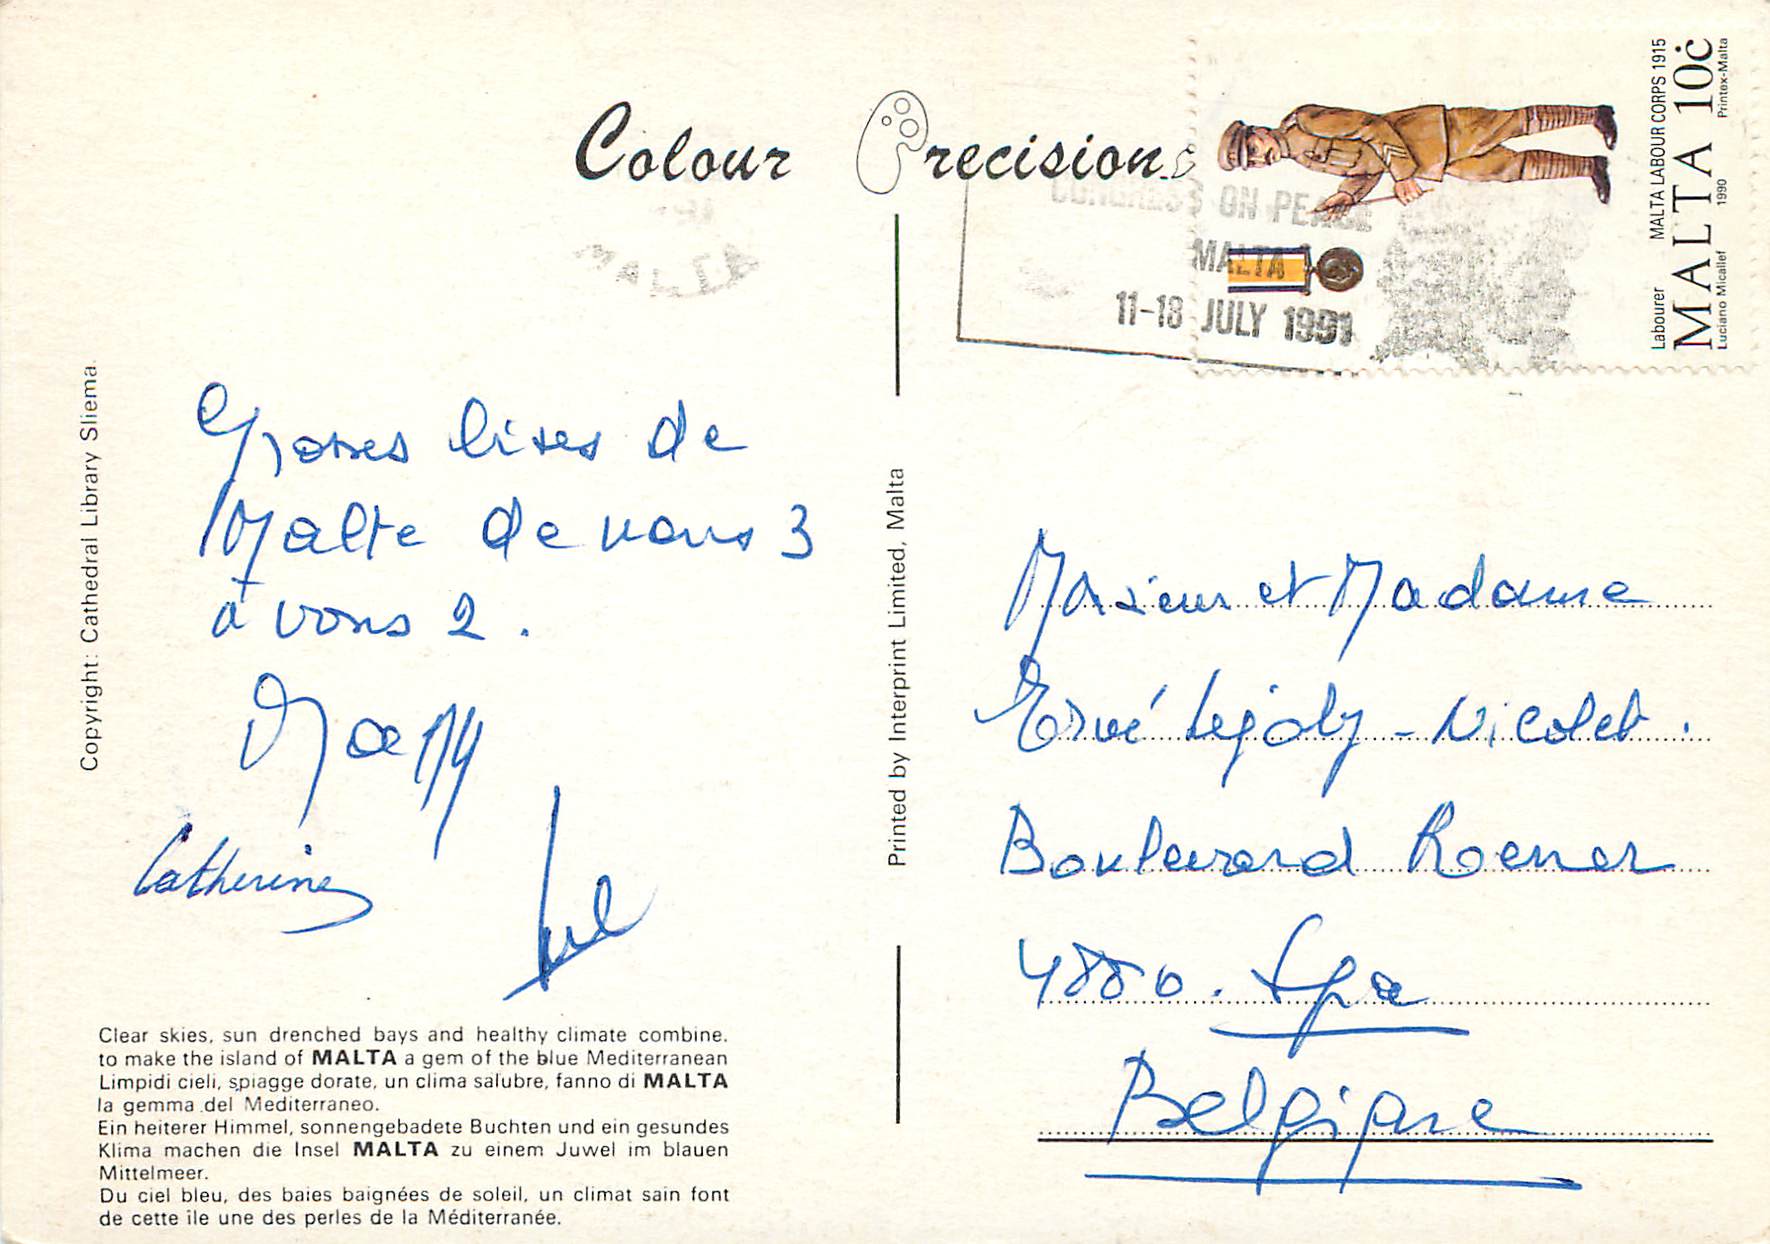 Colour Precisions
CONGRESS ON PEACE
MALTA
11-18 JULY 1991
MALTA
Labourer MALTA LABOUR CORPS 1915
MALTA 10c
Luciano Micallef 1990 Printex-Malta
Copyright: Cathedral Library Sliema.
Grosses bises de
Malte de nous 3
à vous 2.
Catherine
Clear skies, sun drenched bays and healthy climate combine.
to make the island of MALTA a gem of the blue Mediterranean
Limpidi cieli, spiagge dorate, un clima salubre, fanno di MALTA
la gemma del Mediterraneo.
Ein heiterer Himmel, sonnengebadete Buchten und ein gesundes
Klima machen die Insel MALTA zu einem Juwel im blauen
Mittelmeer.
Du ciel bleu, des baies baignées de soleil, un climat sain font
de cette île une des perles de la Méditerranée.
Printed by Interprint Limited, Malta
Monsieur et Madame
Hervé Lejoly-Nicolet.
Boulevard Roener
4880. Spa
Belgique